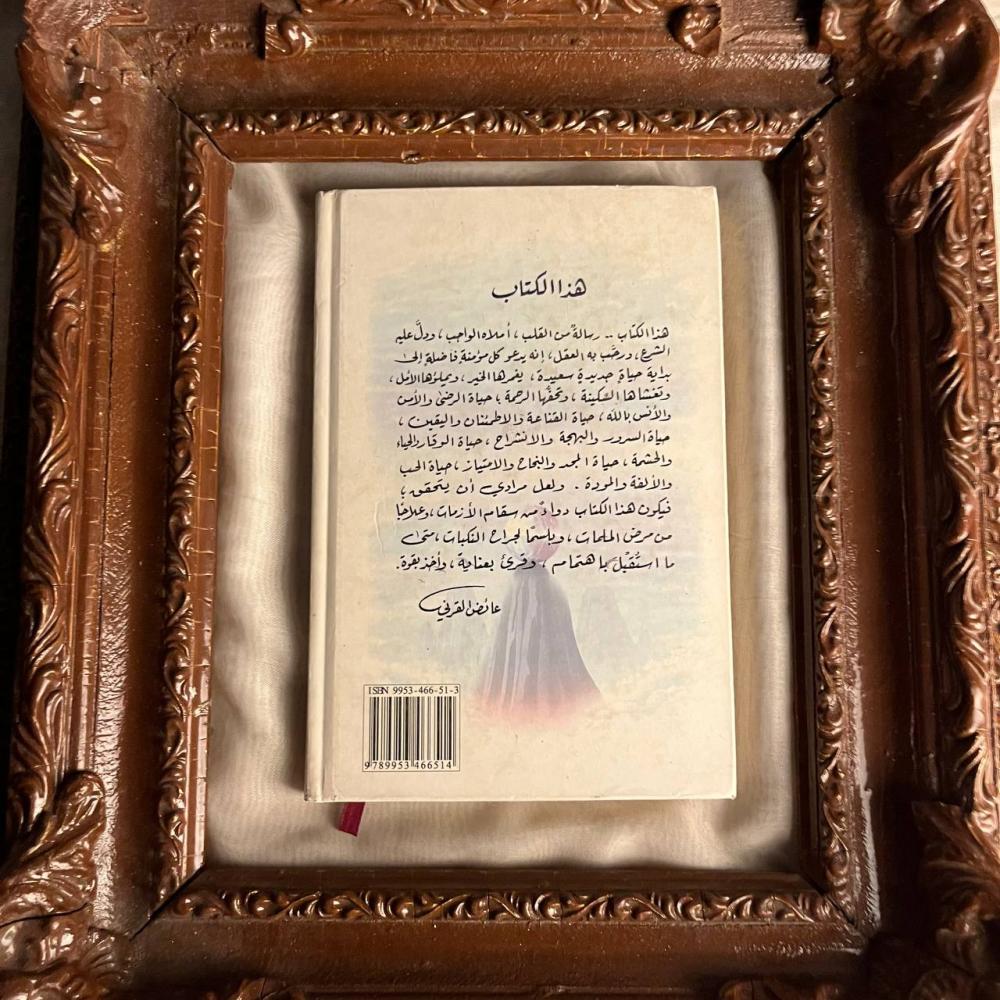 هذا الكتاب
هذا الكتاب .. رسالةٌ من القلب ، أملاه الواجب ، ودلَّ عليه
الشرع ، ورحَّب به العقل ، إنه يدعو كل مؤمنةٍ فاضلة إلى
بداية حياةٍ جديدةٍ سعيدة ، يغمرها الخير ، ويملؤها الأمل ،
وتغشاها السكينة ، وتحفُّها الرحمة ، حياة الرضى والأمن
والأنس بالله ، حياة القناعة والاطمئنان واليقين ،
حياة السرور والبهجة والانشراح ، حياة الوقار والحياء
والحشمة ، حياة المجد والنجاح والامتياز ، حياة الحب
والألفة والمودة . ولعل مرادي أن يتحقق ،
فيكون هذا الكتاب دواءً من سقام الأزمات ، وعلاجًا
من مرض الملمات ، وبلسمًا لجراح النكبات ، متى
ما استُقبِل باهتمام ، وقرئ بعناية ، وأخذ بقوة .
عائض القرني
ISBN 9953-466-51-3
9 789953 466514